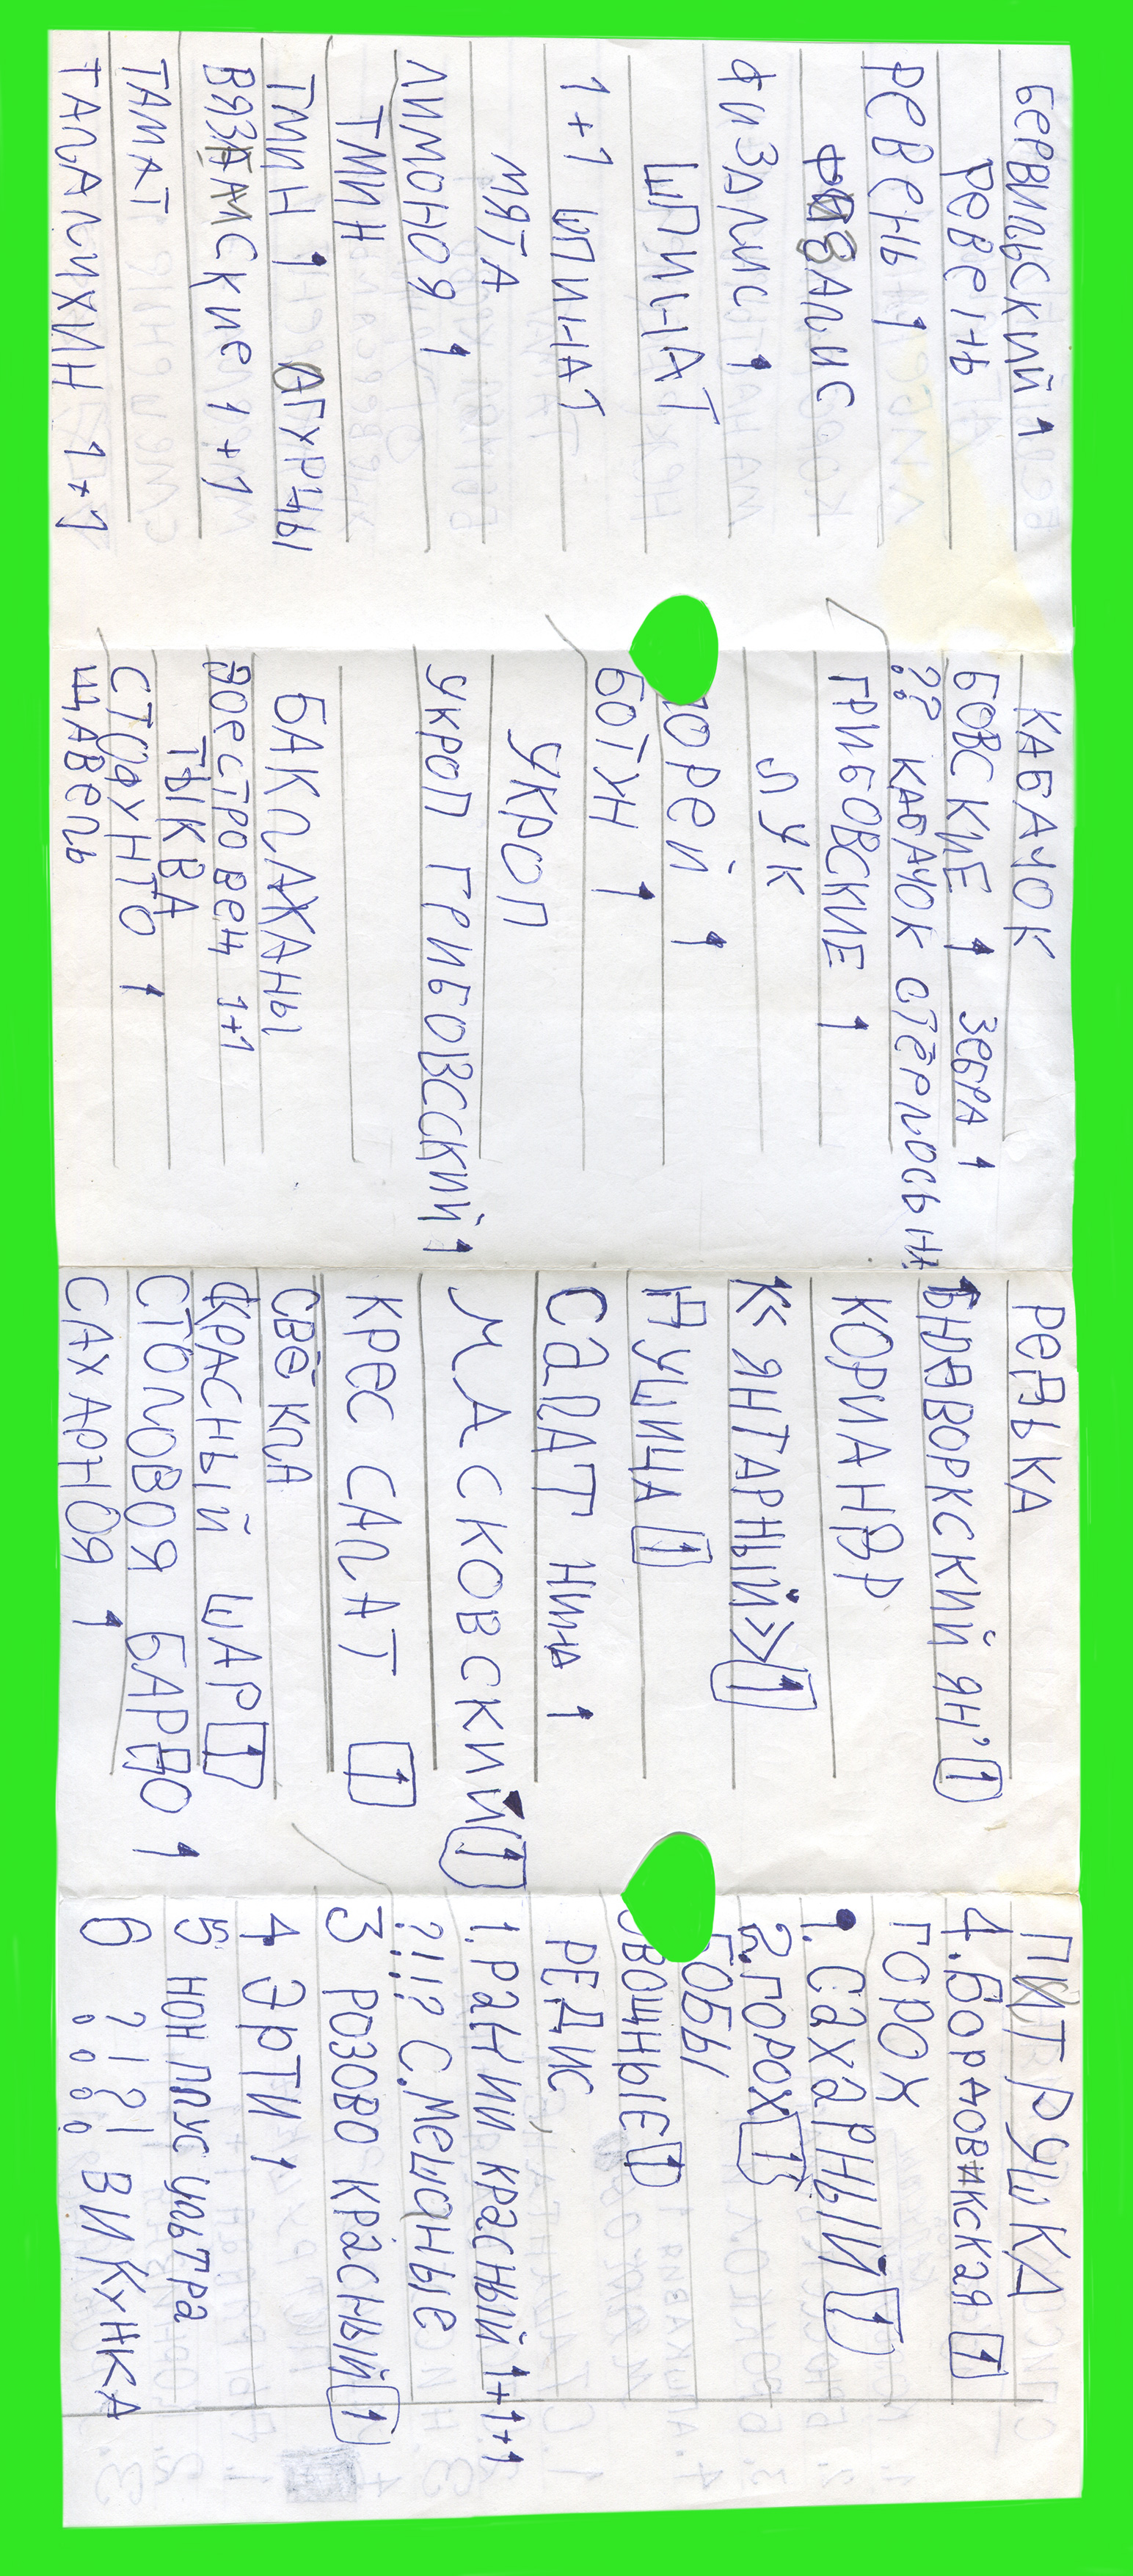 БЕРВИЛЬСКИЙ 1
РЕВЕНЬ
РЕВЕНЬ 1
ФИЗАЛИС
ФИЗАЛИС 1
ШПИНАТ
1+1 ШПИНАТ
МЯТА
ЛИМОНОЯ 1
ТМИН
ТМИН 1 ОГУРЧЫ
ВЯЗАМСКИЕ 1+1
ТАМАТ
ТАЛАЛИХИН 1+1
КАБАЧОК
БОВСКИЕ 1 ЗЕБРА 1
?? КАБАЧОК СТЁРЛОСЬ
ГРИБОВСКИЕ 1
ЛУК
ПОРЕЙ 1
БОТУН 1
УКРОП
УКРОП ГРИБОВССКИЙ 1
БАКЛАЖАНЫ
1+1
ТЫКВА
СТОФУНТО 1
ЩАВЕЛЬ
РЕДЬКА
ЯН' 1
КОРИАНДР
<< ЯНТАРНЫЙ>> 1
ДУШИЦА 1
САЛАТ 1
МАСКОВСКИЙ 1
КРЕС САЛАТ 1
СВЁКЛА
КРАСНЫЙ ШАР 1
СТОЛОВОЯ БАРДО 1
САХАРНОЯ 1
ПИТРУШКА
4. БОРДОВИКСКАЯ 1
ГОРОХ
1. САХАРНЫЙ 1
2. ГОРОХ 1
БОБЫ
ОВОЩНЫЕ 1
РЕДИС
1. РАНИИ КРАСНЫЙ 1+1+1
?!!? С.МЕШОНЫЕ
3 РОЗОВО КРАСНЫЙ 1
4 ЭРТИ 1
5 НОН ПЛУС УЛЬТРА
6 ?!?! ВИКУНЖКА